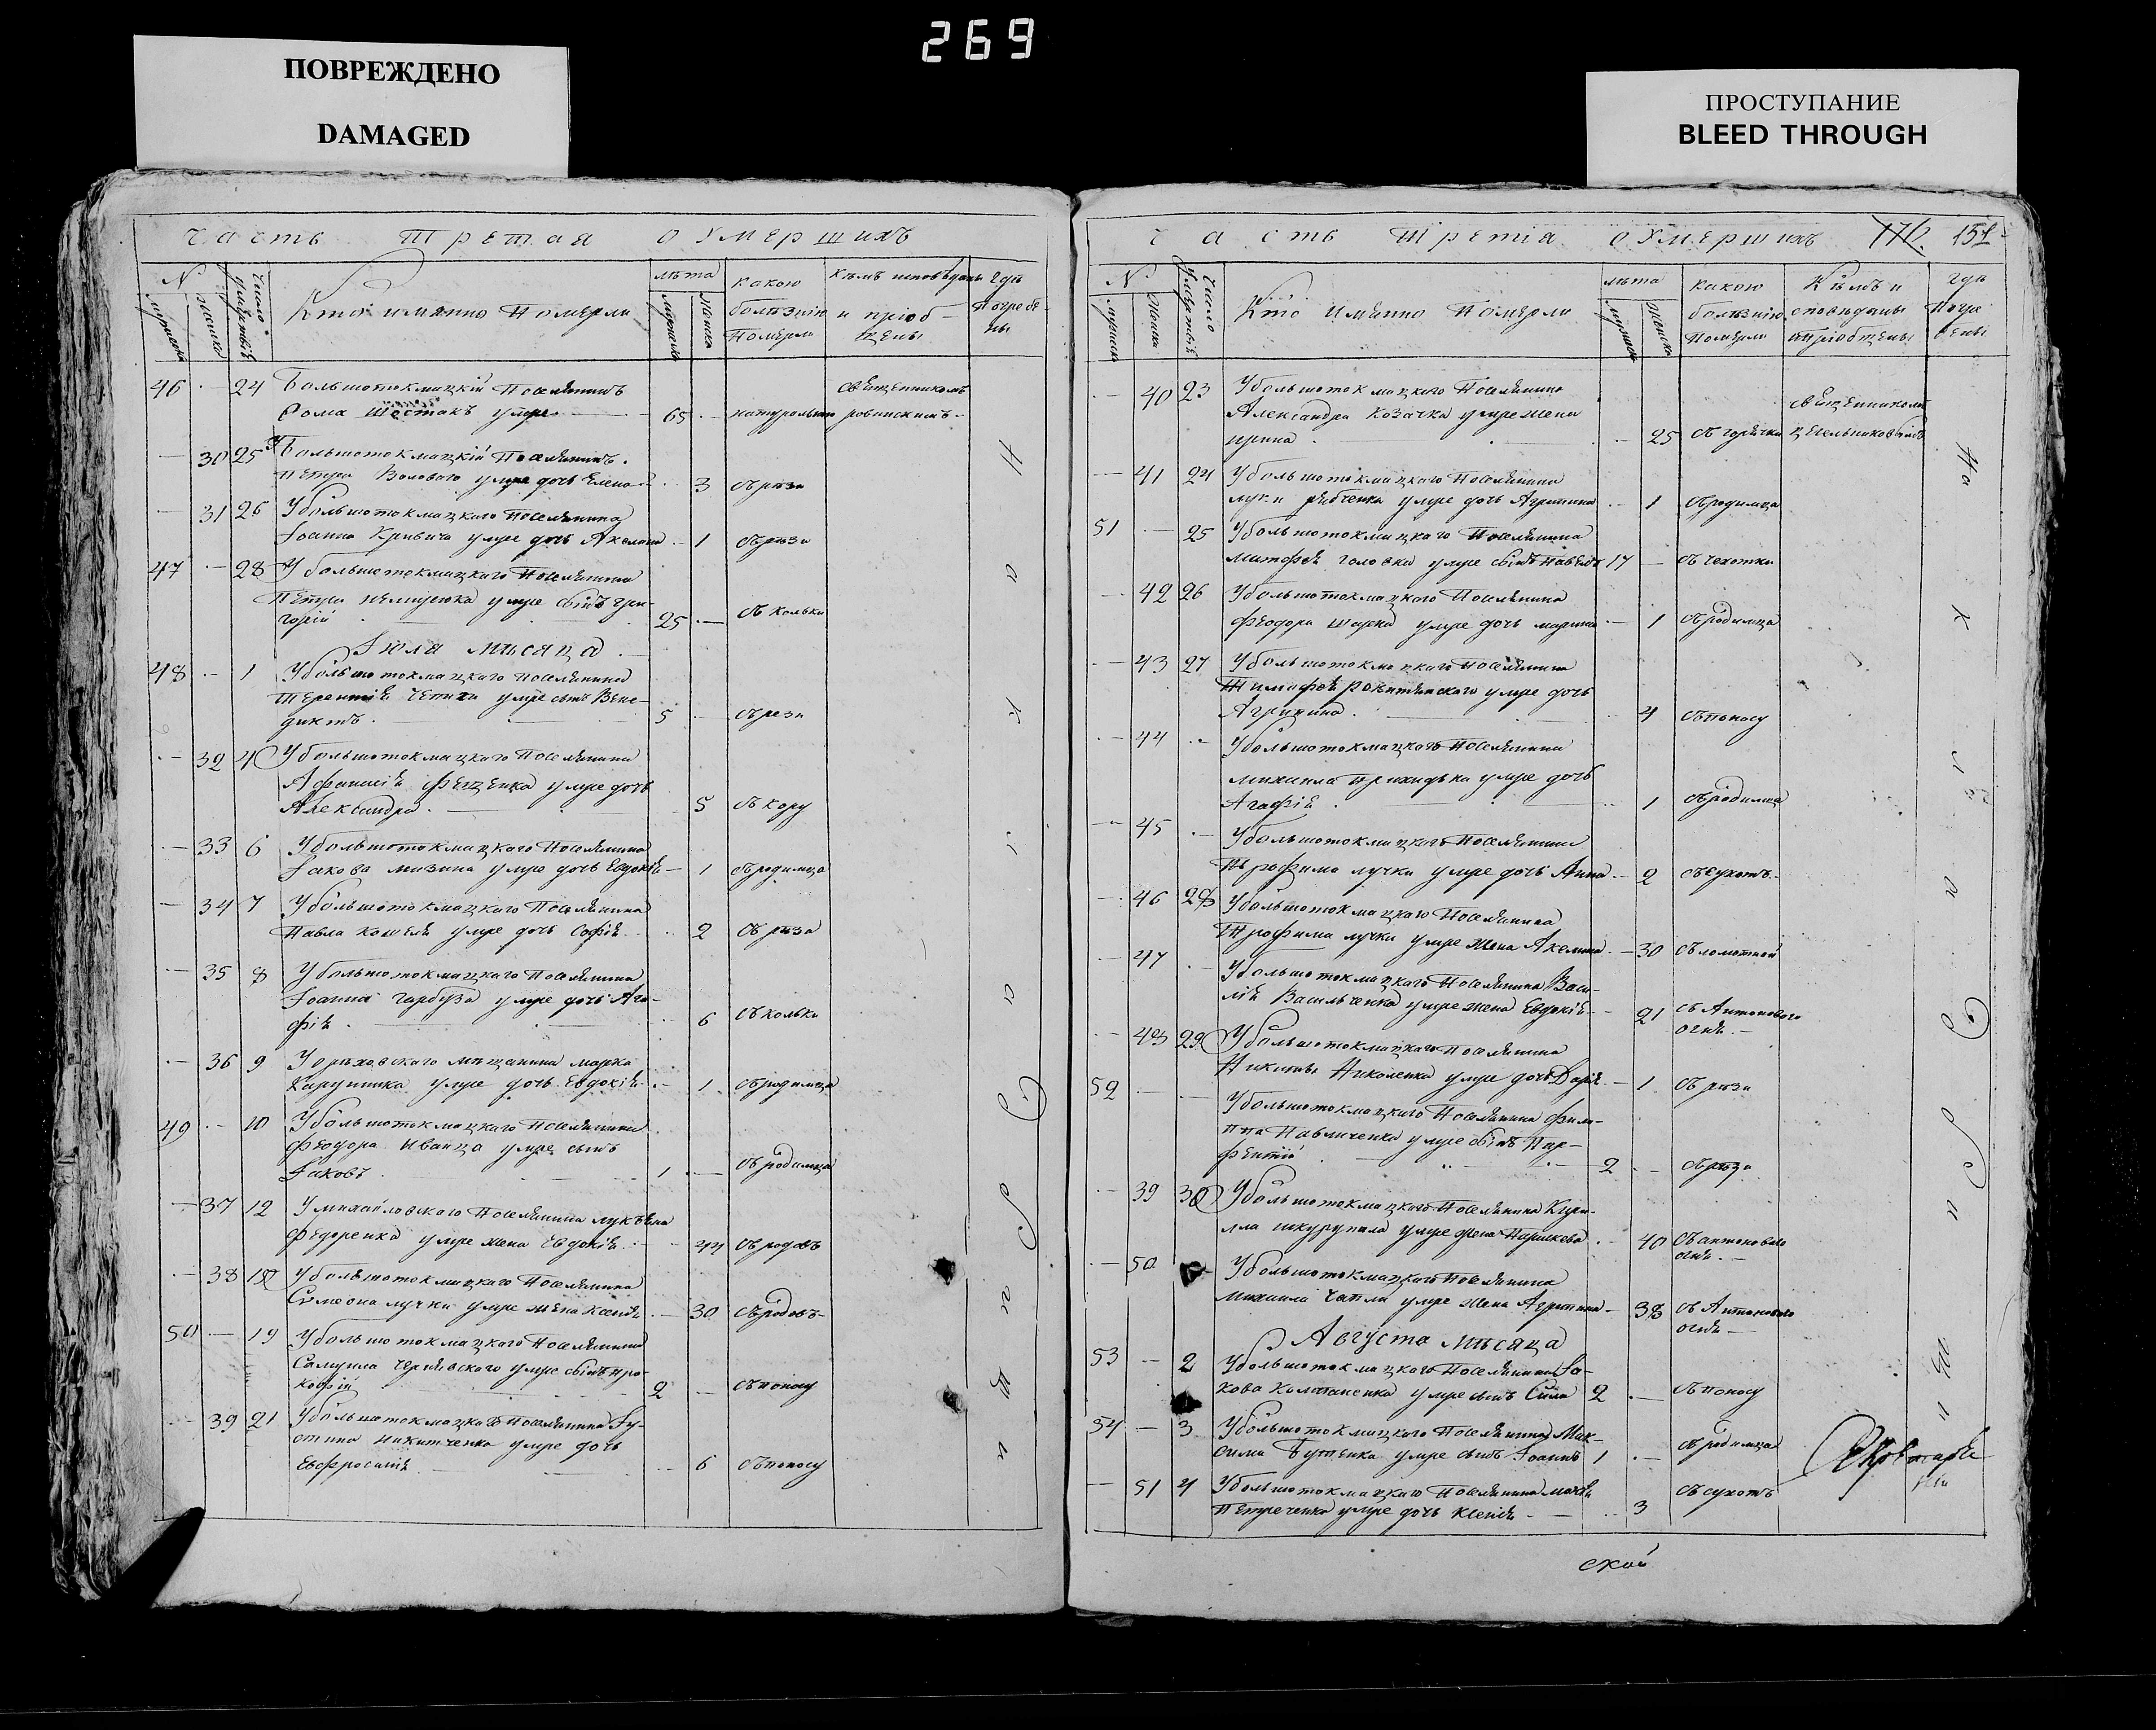 269
ПОВРЕЖДЕНО
DAMAGED
ПРОСТУПАНИЕ
BLEED THROUGH
Часть Третая о умершихъ
N Число умертвій Кто имянно Померли лѣта какою болѣзнію Померли Кѣмъ исповѣданы и пріобщены Гдѣ Погребены
46 24 Большотокмацкій Поселянинъ
Фома Шостакъ умре 65 натурольно священникомъ
30 25 Большотокмацкій Поселянинъ
Петра Волового умре дочь Елена 3 Ѿ рѣзи
31 26 У большотокмацкаго Поселянина
Іоанна Кривича умре дочь Акелина 1 Ѿ рѣзи
47 28 У большотокмацкаго Поселянина
Петра умре сынъ Гри-
горій 25 Ѿ кольки
Іюля мѣсяца
48 1 У большотокмацкаго поселянина
Терентія умре сынъ Вене-
диктъ 5 Ѿ рези
32 4 У большотокмацкаго Поселянина
Афанасія Фещенка умре дочь
Александра 5 Ѿ кору
33 6 У большотокмацкого Поселянина
Іакова мизина умре дочь Евдокія 1 Ѿ родимца
34 7 У большотокмацкаго Поселянина
Павла кошеля умре дочь Софія 2 Ѿ рѣза
35 8 У большотокмацкаго Поселянина
Іоанна гарбуза умре дочь Ага-
фія 6 Ѿ кольки
36 9 У орѣховскаго мѣщанина марка
умре дочь Евдокія 1 Ѿ родимца
49 10 У большотокмацкаго Поселянина
Феодора Иванца умре сынъ
Іаковъ 1 Ѿ родимца
37 12 У михайловского Поселянина
Федоренка умре жена Евдокія 44 Ѿ родовъ
38 У большотокмацкаго Поселянина
Симеона лучки умре жена Ксенія 30 Ѿ родовъ
50 19 У большотокмацкаго Поселянина
Самуила Чернявского умре сынъ Про-
кофій 2 Ѿ поносу
39 21 У большотокмацкаго Поселянина Іу-
стина никитченка умре дочь
Евфросинія 6 Ѿ поносу
На кла д би щи
Часть Третія о умершихъ 176 151
N Число умертвій Кто Имянно Померли лѣта какою болѣзнію Померли Кѣмъ исповѣданы и пріобщены гдѣ Погребены
40 23 У большотокмацкаго Поселянина
Александра козачка умре жена священникомъ
ирина 25 Ѿ горячки
41 24 У большотокмацкаго Поселянина
луки рябченка умре дочь Агрипина 1 Ѿ родимца
51 25 У большотокмацкаго Поселянина
митофея головка умре сынъ Павелъ 17 Ѿ чехотки
42 26 У большотокмацкаго Поселянина
Феодора шарка умре дочь марина 1 Ѿ родимца
43 27 У большотокмацкаго Поселянина
Тимофея рокитянского умре дочь
Агрипина 4 Ѿ поносу
44 У большотокмацкаго Поселянина
михаила приходька умре дочь
Агафія 1 Ѿ родимца
45 У большотокмацкаго Поселянина
Трофима лучки умре дочь Анна 2 Ѿ сухотъ
46 28 У большотокмацкаго Поселянина
Трофима лучки умре жена Акелина 30 Ѿ ломотной
47 У большотокмацкаго Поселянина Васи-
лія Васильченка умре жена Евдокія 21 Ѿ Антонового
огня
48 29 У большотокмацкаго Поселянина
Никиты Николенка умре дочь Дарія 1 Ѿ рѣзи
52 У большотокмацкаго Поселянина Фили-
ппа Павличенка умре сынъ Пар-
фентій 2 Ѿ рѣза
39 30 У большотокмацкаго Поселянина Кири-
лла шкурупила умре жена 40 Ѿ антонового
огня
50 У большотокмацкаго Поселянина
михаила Чапли умре жена Агрипина 38 Ѿ Антонового
огня
Августа мѣсяца
53 2 У большотокмацкаго Поселянина Іа-
кова Компаненка умре сынъ Сила 2 Ѿ поносу
54 3 У большотокмацкаго Поселянина Мак-
сима Бутенка умре сынъ Іоаннъ 1 Ѿ родимца
51 4 У большотокмацкаго Поселянина
Петреченка умре дочь Ксенія 3 Ѿ сухотъ
На кла д би щи
ской